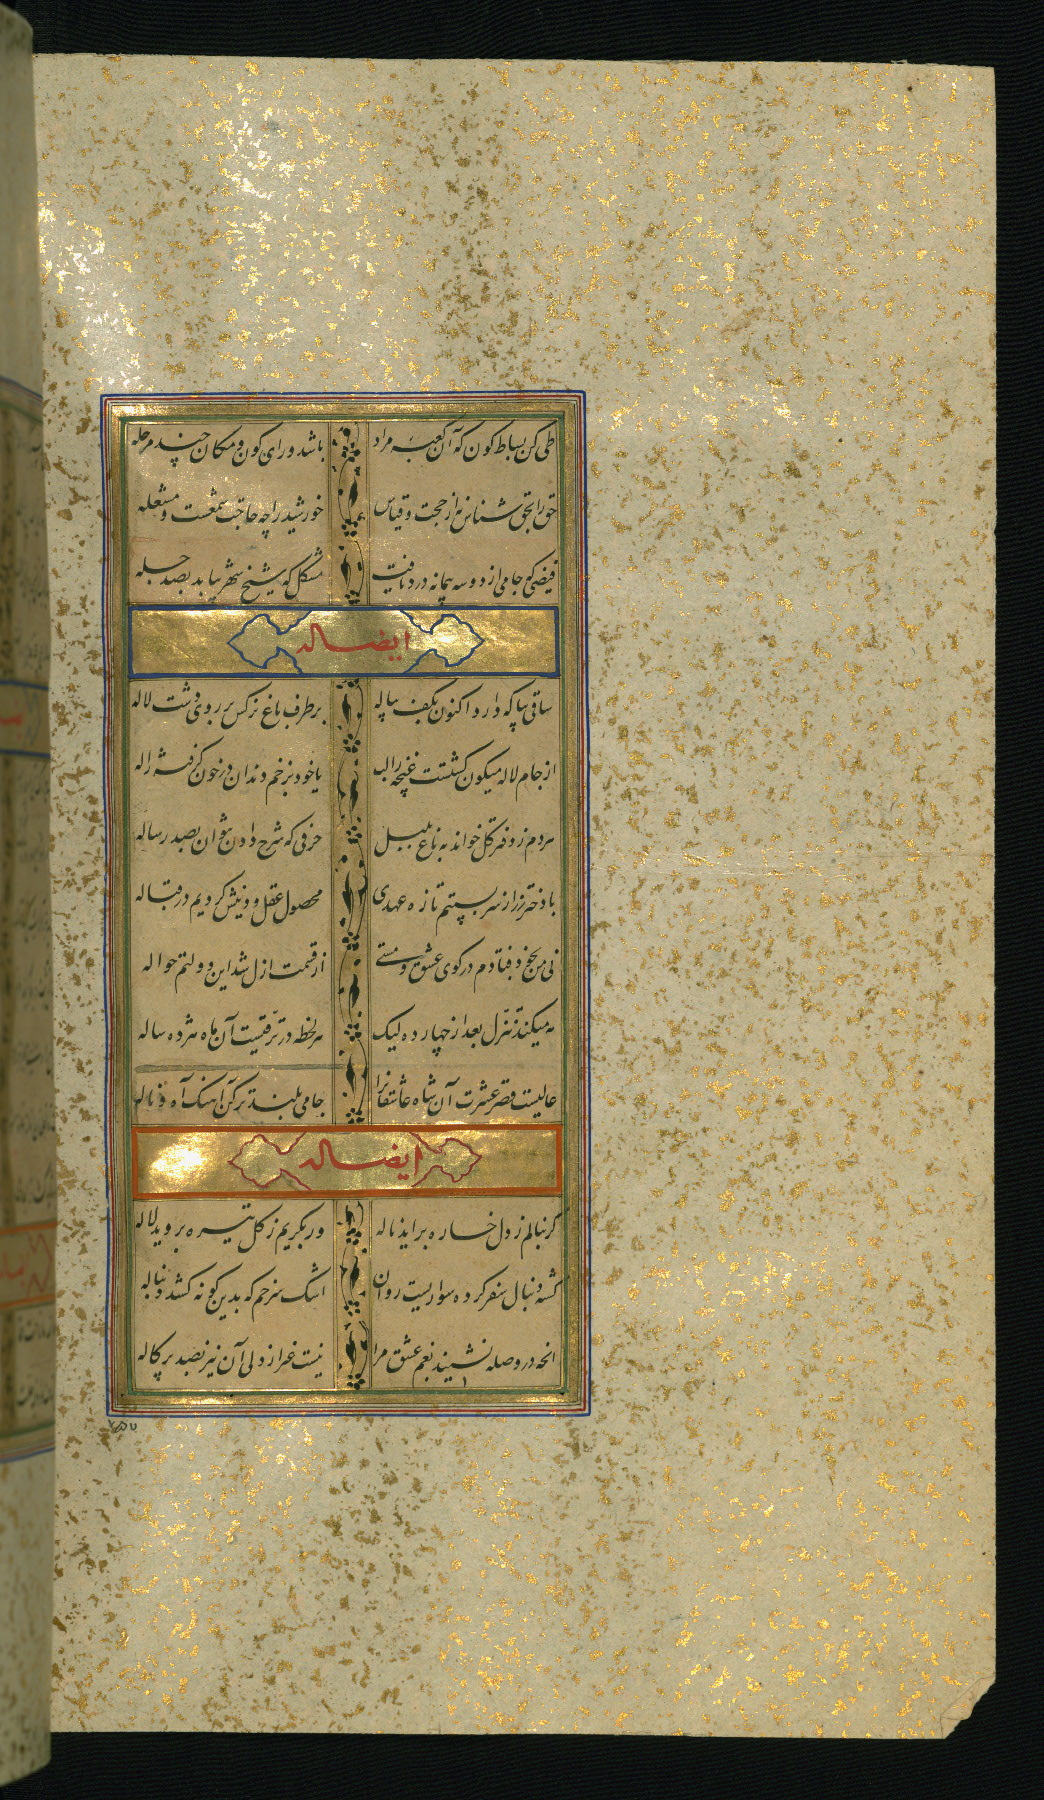 طی کن بساط کون که آن کعبه مراد باشد ورای کون و مکان چند مرحله
حق را بحق شناس نه از حجت و قیاس خورشید را چه حاجت شمعست و مشعله
فیضی که جامی از دو سه پیمانه درد یافت مشکل که شیخ شهر بیابد بصد چله
ایضا له
ساقی بیا که دارد اکنون بکف پیاله بر طرف باغ نرکس بر روی دشت لاله
از جام لاله میکون کشتست غنچه را لب یا خود بزخم دندان در خون کرفته ژاله
هر دم ز دفتر کل خواند به باغ بلبل حرفی که شرح دادن نتوان بصد رساله
با دختر رز از سر بستیم تازه عهدی محصول عقل و دینش کردیم در قباله
نی من بخود فتادم در کوی عشق و مستی از قسمت ازل شد این دولتم حواله
مه میکند تنزل بعد از چهارده لیک هر لحظه در ترقیست آن ماه هژده ساله
عالیست قصر عشرت آن شاه عاشقانرا جامی بلندتر کن آهنک آه و ناله
ایضا له
کر بنالم ز دل خاره براید ناله ور بکریم ز کل تیره بروید لاله
کشته دنبال سفر کرده سواریست روان اشک سرخم که بدین کونه کشد دنباله
انچه در وصله نشیند بغم عشق مرا نیست غیر از دلی آن نیز بصد پرکاله